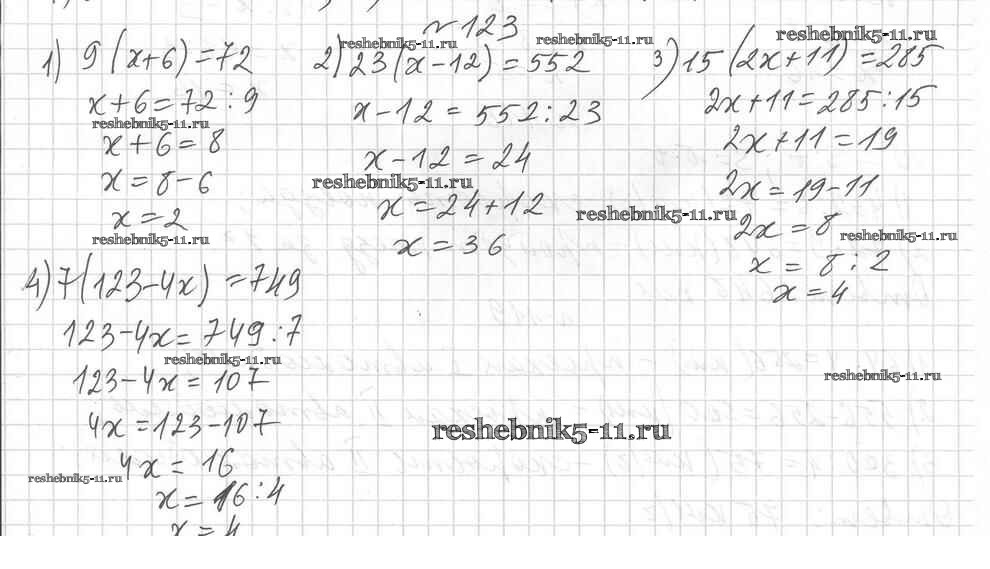 № 123
1) 9 (x+6) = 72
x+6 = 72 : 9
x+6 = 8
x = 8 - 6
x = 2
2) 23 (x-12) = 552
x-12 = 552 : 23
x-12 = 24
x = 24 + 12
x = 36
3) 15 (2x+11) = 285
2x+11 = 285 : 15
2x+11 = 19
2x = 19-11
2x = 8
x = 8 : 2
x = 4
4) 7 (123-4x) = 749
123-4x = 749 : 7
123-4x = 107
4x = 123-107
4x = 16
x = 16 : 4
x = 4
reshebnik5-11.ru
reshebnik5-11.ru
reshebnik5-11.ru
reshebnik5-11.ru
reshebnik5-11.ru
reshebnik5-11.ru
reshebnik5-11.ru
reshebnik5-11.ru
reshebnik5-11.ru
reshebnik5-11.ru
reshebnik5-11.ru
reshebnik5-11.ru